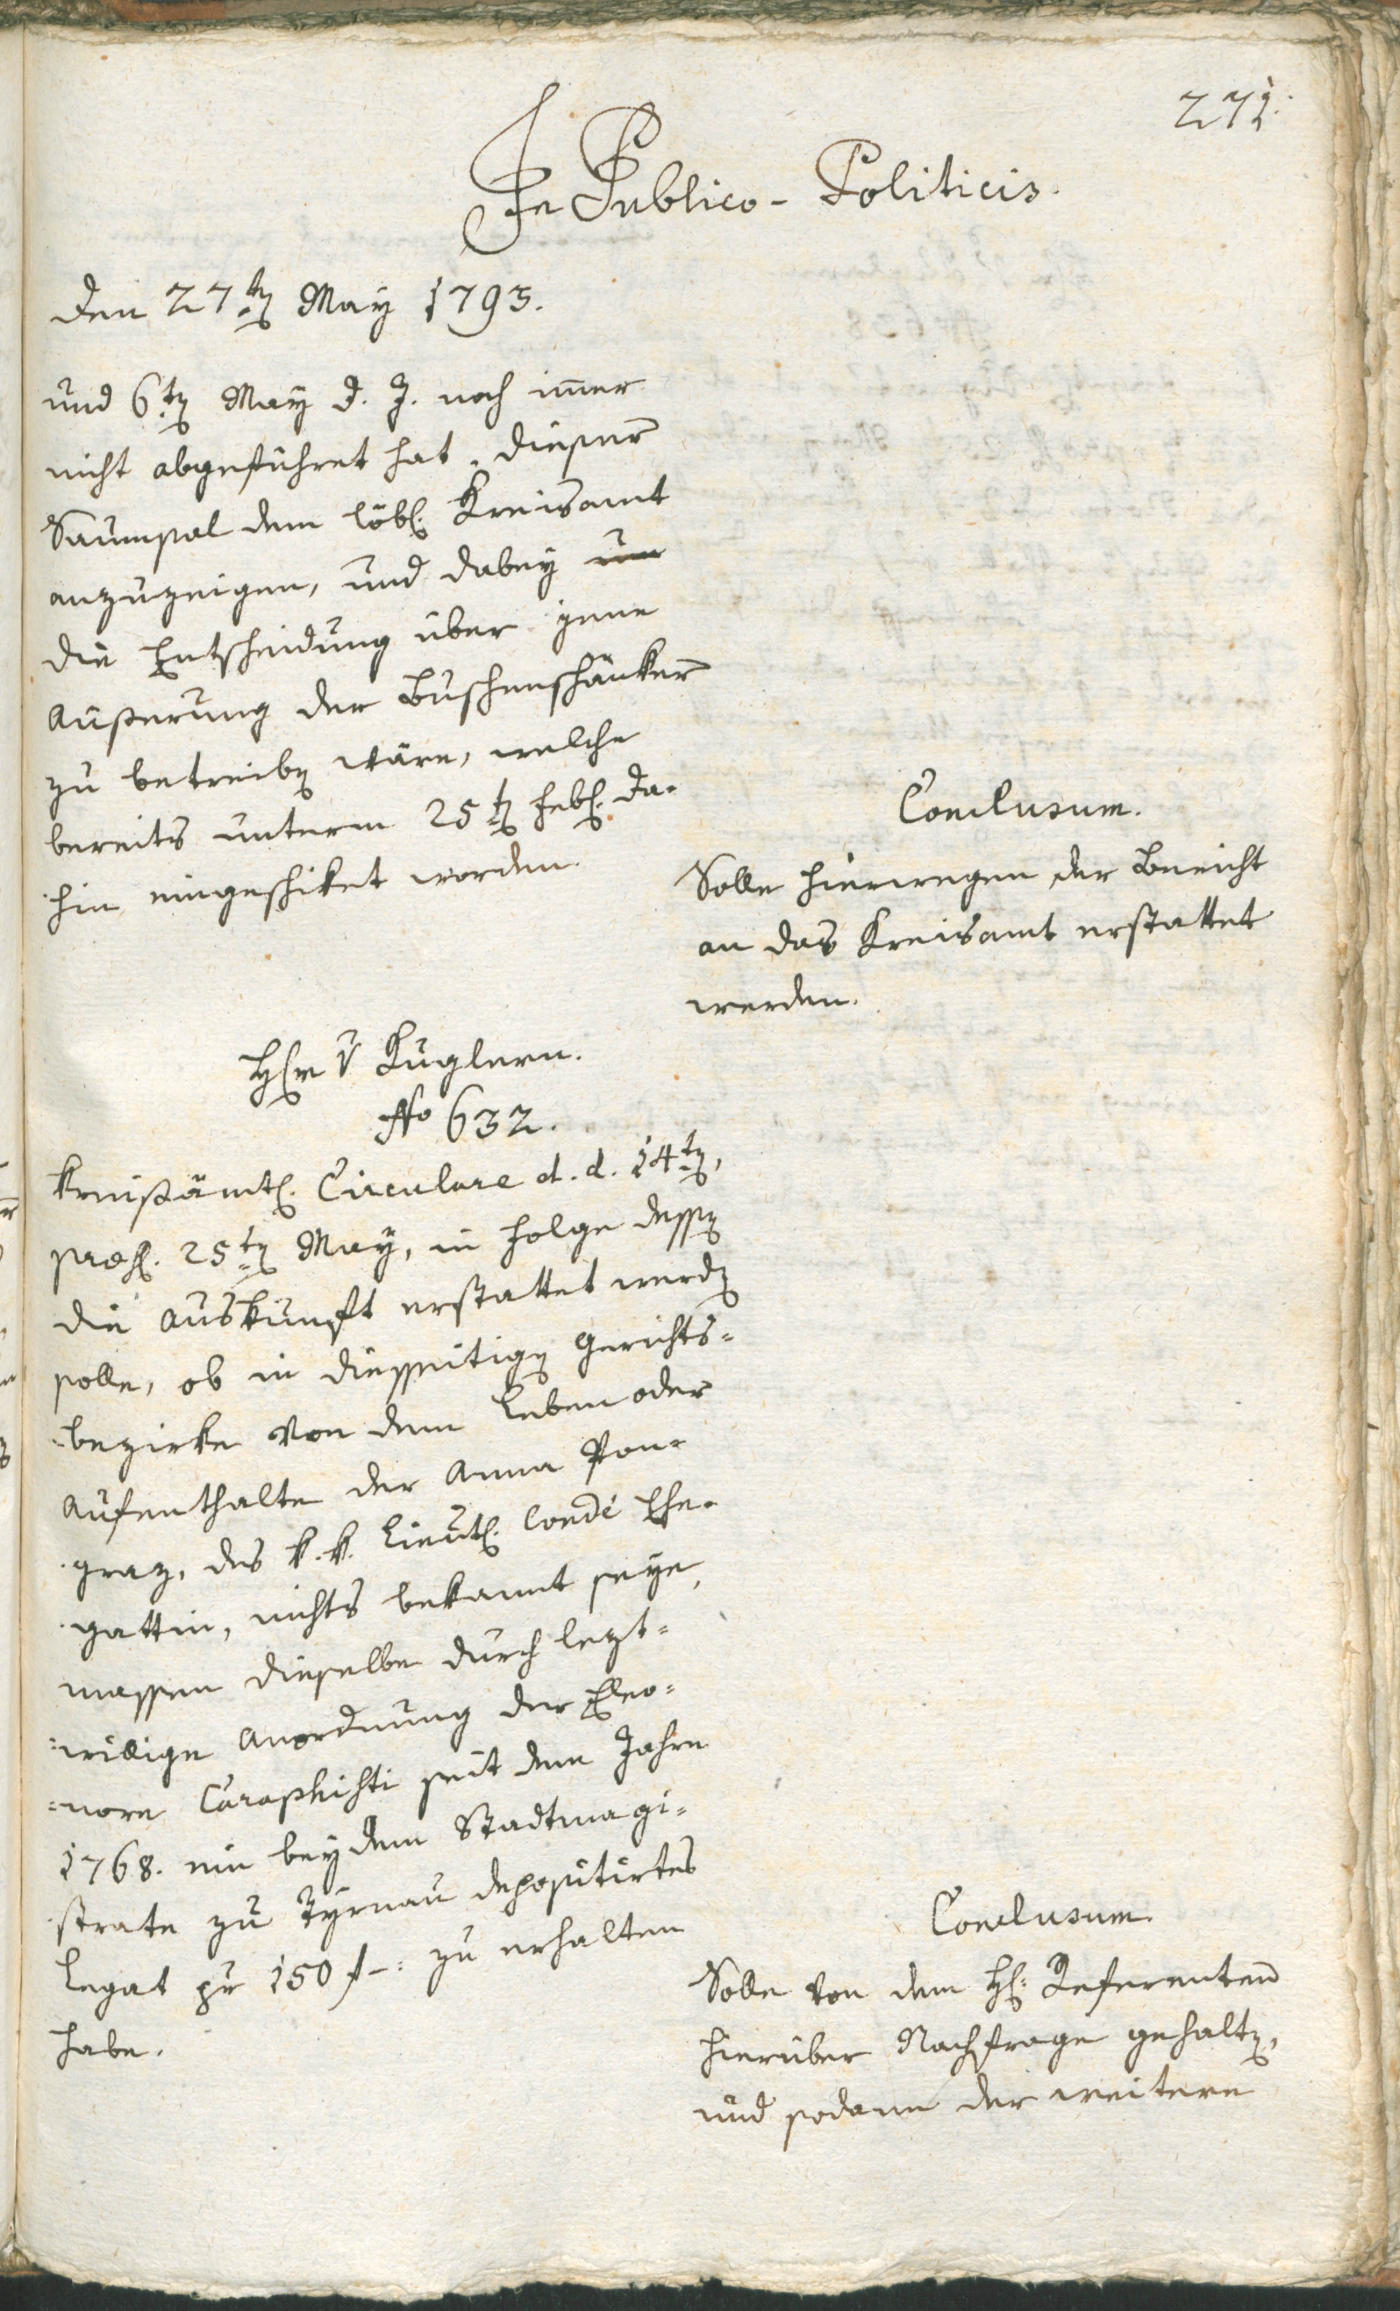 271.
In Publico-Politicis.
den 27ten May 1793.
und 6ten May d. J. noch imer
nicht abgeführet hat, dieser
Saumsal dem löbl. Kreisamt
anzuzeigen, und dabey um
die Entscheidung über jene
Äußerung der Buschenschänker
zu betreiben wäre, welche
bereits unterm 25ten Febr. da-
hin eingeschiket worden.
Conclusum.
Solle hierwegen der Bericht
an das Kreisamt erstattet
werden.
Hr v Kuglern.
No 632.
Kreißämtl. Circulare d. d. 14ten,
praes. 25ten May, in Folge dessen
die Auskunft erstattet werden
solle, ob in diesseitigen Gerichts-
bezirke von dem Leben oder
Aufenthalte der Anna Pon-
graz, des k. k. Lieut. Condé Ehe-
gattin, nichts bekannt seye,
massen dieselbe durch lezt-
willige Anordnung der Eleo-
nore Caraphisti seit dem Jahre
1768. ein bey dem Stadtmagi-
strate zu Tyrnau depositirtes
Legat pr 150 f-: zu erhalten
habe.
Conclusum.
Solle von dem H: Referenten
hierüber Nachfrage gehalten,
und sodann der weitere